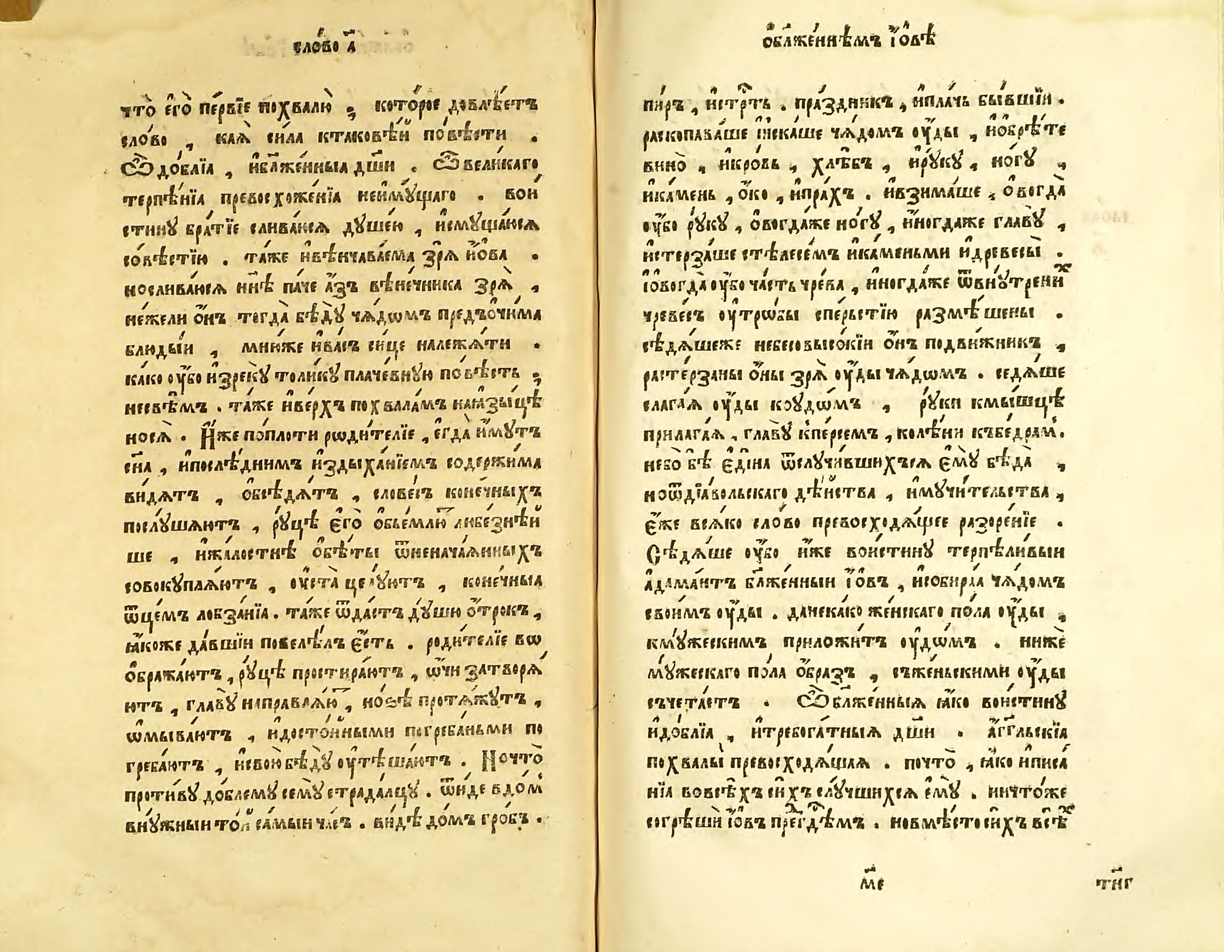 сло́во а҃
что̀ є҆го̀ пе́рвїе похвалю̀ ; кото́рое довлѣ́етъ
сло́во , ка́ѧ си́ла ктаково́й по́вѣсти .
Ѽ до́блїа , и҆блаже́нныа дш҃и . ѽ вели́каго
терпѣ́нїа превосхоже́нїа неимꙋ́щаго . вои́
стинꙋ бра́тїе слива́юсѧ дꙋше́ю , и҆смꙋща́юсѧ
со́вѣстїю . та́же и҆вѣнчава́ема зрѧ̀ и҆́ова .
носливаюсѧ нн҃ѣ па́че а҆́зъ вѣне́чника зрѧ̀ ,
не́жели ѻ҆́нъ тогда̀ бѣдꙋ̀ чѧ́дѡмъ предъѻчи́ма
блюды́и , мни́же и҆ва́съ си́це належѧ́ти .
ка́ко ᲂу҆́бо и҆зрекꙋ̀ толи́кꙋ плаче́внꙋю по́вѣсть ;
несвѣ́мъ . та́же и҆ве́рхъ похвала́мъ наѧзы́цѣ
носѧ̀ . И҆́же попло́ти рѡди́телїе , є҆гда̀ и҆́мꙋтъ
сн҃а , и҆послѣ́днимъ и҆здыха́нїемъ содержи́ма
ви́дѧтъ , ѡ҆бсѣдѧ́тъ , слове́съ коне́чныхъ
послꙋша́ютъ , рꙋ́цѣ є҆го̀ ѡ҆бье́млю любе́знѣй
ше , и҆жа́лостнѣ ѡ҆бѣ́ты ѿненача́ѧнныхъ
совокꙋпла́ютъ , ᲂу҆ста̀ цѣлꙋ́ютъ , коне́чныа
ѿце́мъ лобза́нїа . та́же ѿда́стъ дꙋ́шꙋ ѻ҆́трокъ ,
ꙗ҆́коже да́вшїи повелѣ́лъ є҆́сть . роди́телїе во
ѡ҆бража́ютъ , рꙋ́цѣ простира́ютъ , ѻ҆́чи затворѧ́
ютъ , главꙋ̀ направлѧ́ю , но́зѣ протѧ́жꙋтъ ,
ѡ҆мыва́ютъ , и҆досто́йными погреба́ньми по
греба́ютъ , и҆свою̀ бѣдꙋ̀ ᲂу҆тѣша́ютъ . Ночто̀
проти́вꙋ до́блемꙋ семꙋ̀ страда́лцꙋ . ѿи́де вдо́м
внꙋ́жныи то́й са́мыи ча́съ . ви́дѣ до́мъ гро́бъ .
ѡ҆блаже́ннѣмъ І҆́овѣ
пи́ръ , и҆стрⷭ҇ть . пра́здникъ , и҆пла́чь бы́вшїи .
раскопава́ше и҆ска́ше чѧ́домъ ᲂу҆́ды , и҆ѡ҆брѣ́те
вино̀ , и҆кро́вь , хлѣ́бъ , и҆рꙋ́кꙋ , но́гꙋ ,
и҆ка́мень , ѻ҆́ко , и҆пра́хъ . и҆взима́ше , ѻ҆вогда̀
ᲂу҆́бо рꙋ́кꙋ , ѻ҆вогда́же но́гꙋ , и҆ногда́же главꙋ̀ ,
и҆стерза́ше стѣлесе́мъ и҆ка́меньми и҆древесы̀ .
І҆ѻвогда̀ ᲂу҆́бо ча́сть чре́ва , и҆ногда́же ѿвнꙋ́трениⷯ
чреве́съ ᲂу҆тро́бы спе́рьстїю размѣ́шены .
сѣдѧ́шеже небесовысо́кїи ѻ҆́нъ подви́жникъ ,
расте́рзаны ѻ҆́ны зрѧ̀ ᲂу҆́ды чѧ́дѡмъ . седѧ́ше
слага́ѧ ᲂу҆́ды коудѡмъ , рꙋ́ки кмы́шцѣ
прилага́ѧ , главꙋ̀ кпе́рсемъ , колѣ́ни къбедра́м .
небо̀ бѣ̀ є҆ди́на ѿслꙋчи́вшихъсѧ є҆мꙋ̀ бѣда̀ ,
ноѿдїа́вольскаго дѣ́йства , и҆мꙋчи́тельства ,
є҆́же всѧ́ко сло́во превосходѧ́щее разоре́нїе .
Сѣдѧ́ше ᲂу҆́бо и҆́же вои́стинꙋ терпѣли́выи
а҆дама́нтъ блаже́нныи І҆́овъ , и҆собира́ѧ чѧ́домъ
свои́мъ ᲂу҆́ды . данека́ко же́нскаго по́ла ᲂу҆́ды ,
кмꙋ́жескимъ приложи́тъ ᲂу҆́дѡмъ . нижѐ
мꙋ́жескаго по́ла ѡ҆́бразъ , съже́ньскими ᲂу҆́ды
съчета́етъ . Ѽ блаже́нныѧ ꙗ҆́ко вои́стинꙋ
и҆до́блїа , и҆требога́тныѧ дш҃и . а҆́гг҃льскїа
похвалы̀ превосходѧ́щаѧ . почто̀ , ꙗ҆́ко и҆писа́
нїа вовсѣ́хъ си́хъ слꙋ́чшихсѧ є҆мꙋ̀ . ничто́же
согрѣшѝ І҆́овъ пре́гⷣѣмъ . новмѣ́сто си́хъ всѣ́ⷯ
м҃е
тн҃г